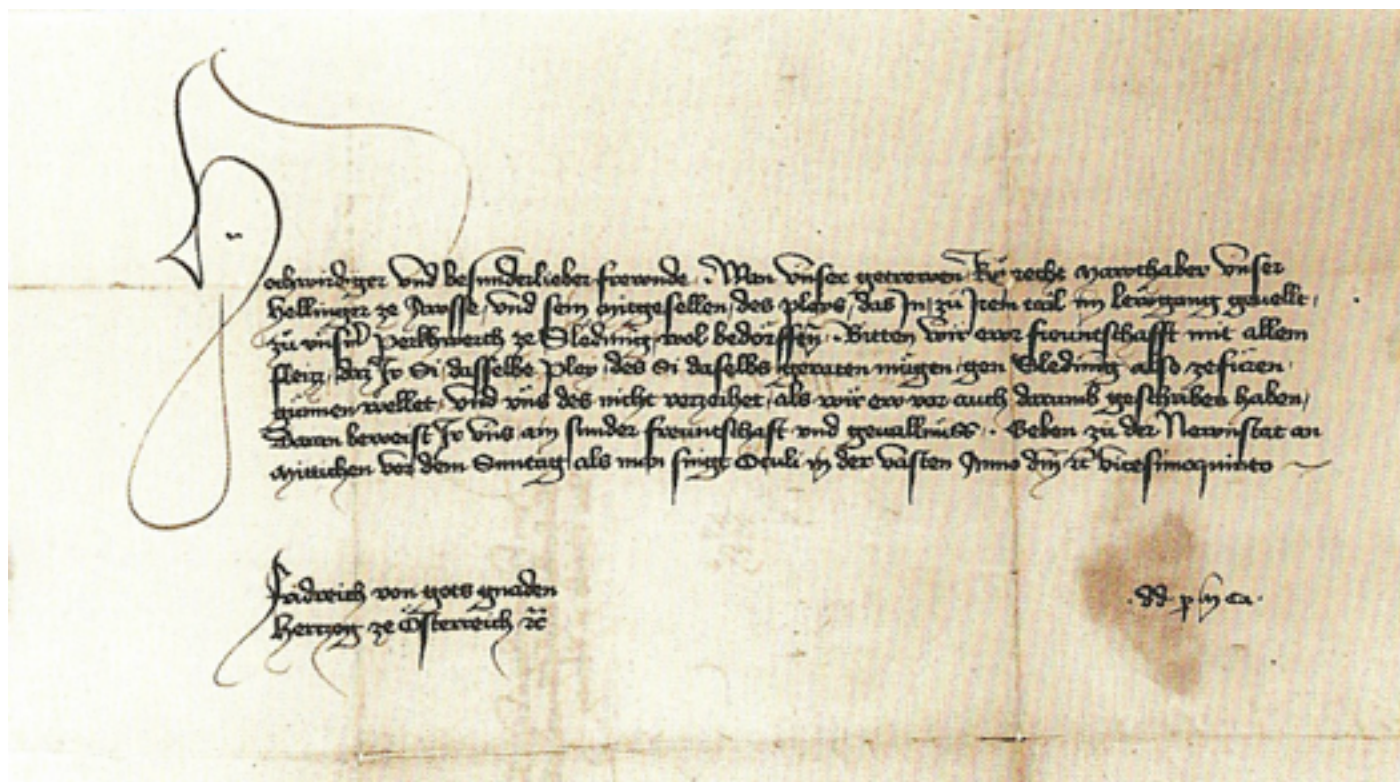 Hochwirdiger vnd besunderlieber frewnde. Wan vnser getrewen
Hellinger ze Awsse, vnd sein mitgesellen, des pleys, das In, zu Irem tail im lewgang geuellt,
zu vnsrm Perkhwerch ze Sledming, wol bedörffen. Bitten wir ewr frewntschafft mit allem
fleizz, daz Ir Si, dasselbe Pley, des Si daselbs geraten mügen, gen Sledming also zefüren,
günnen wellet, vnd vns des nicht verzeihet, als wir ew vor auch darumb geschriben haben,
Daran beweist Ir vns ain sunder frewntschaft vnd geuallnüss. Geben zu der Newnstat an
Mittichen vor dem Sunntag als man singt Oculi in der vasten Anno dm etc vicesimoquinto
Fridreich von gots gnaden
Hertzog ze Österreich etc
.dd. p